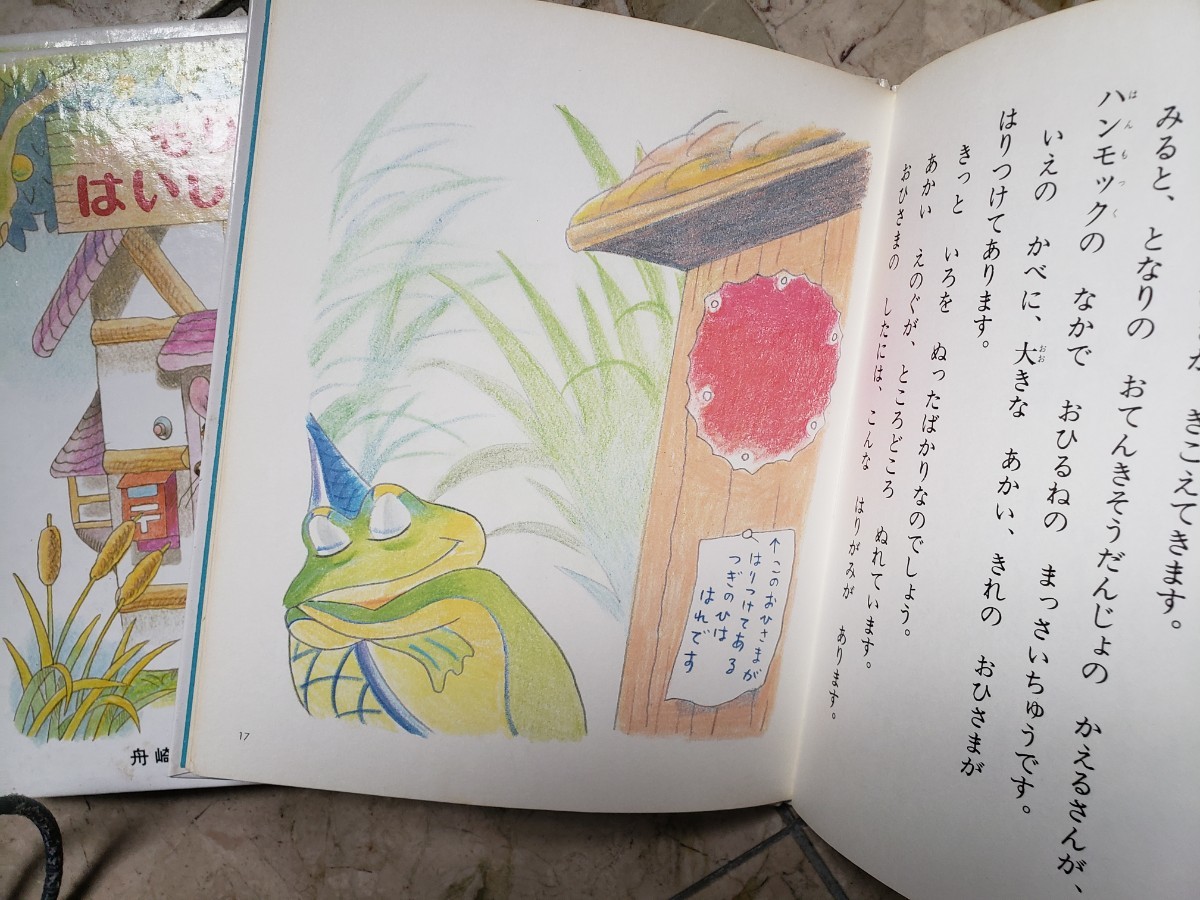 きこえてきます。
みると、となりの おてんきそうだんじょの かえるさんが、
ハンモックの なかで おひるねの まっさいちゅうです。
はんもっく
いえの かべに、大きな あかい、きれの おひさまが
おお
はりつけてあります。
きっと いろを ぬったばかりなのでしょう。
あかい えのぐが、ところどころ ぬれています。
おひさまの したには、こんな はりがみが あります。
↑このおひさまが
はりつけてある
つぎのひは
はれです
17
はいし
〒
舟崎